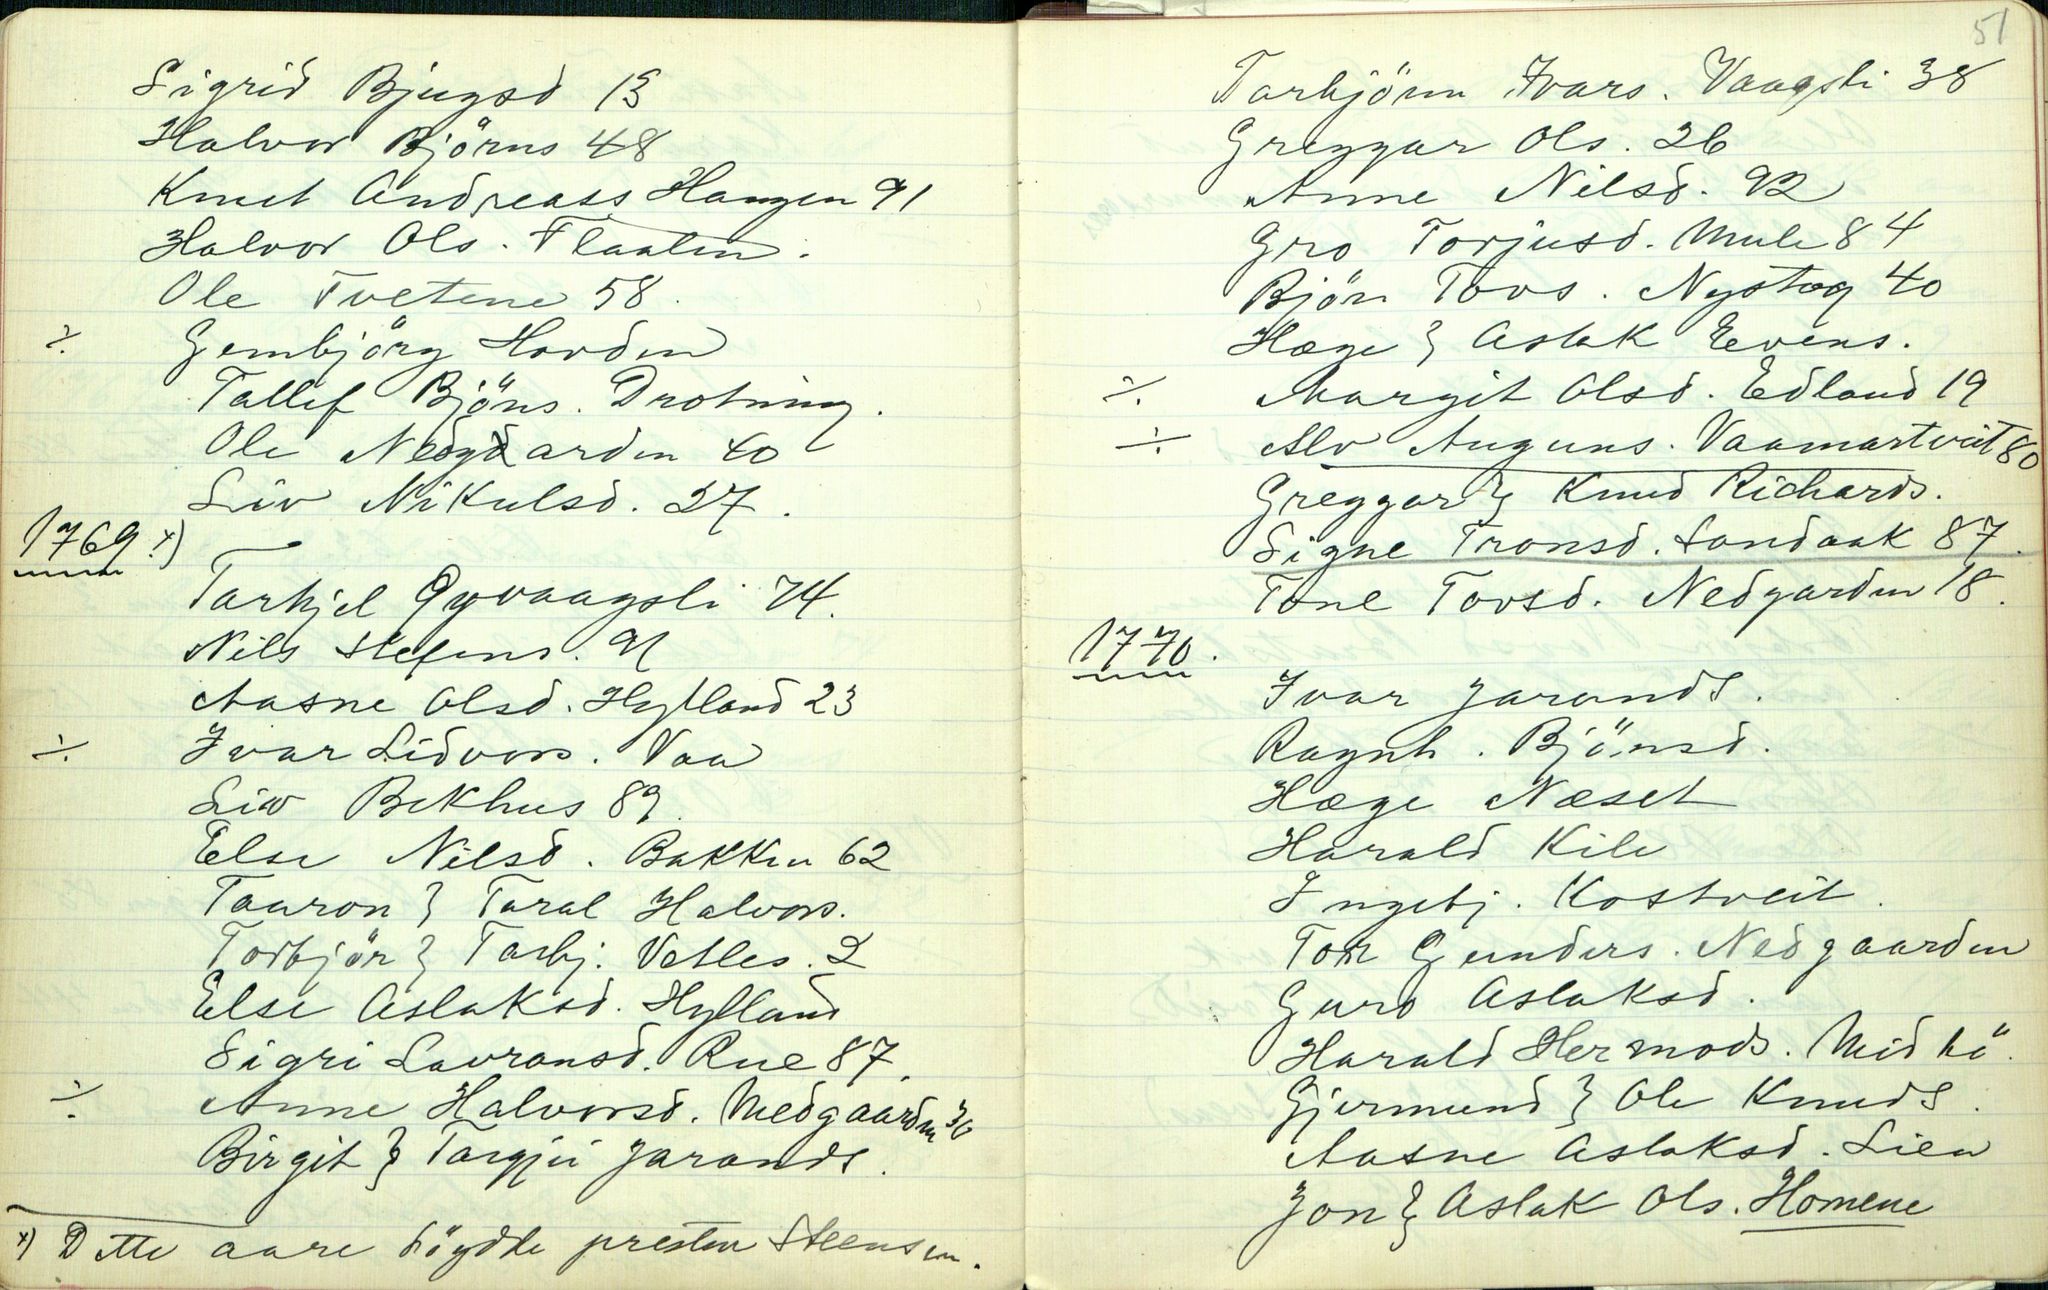 Sigrid Bjugsd 13
Halvor Björns 48
Knut Andreass Haugen 91
Halvor Ols. Flaatin.
Ole Tvetene 58.
÷ Gunbjörg Hovden
Tallef Bjöns. Drotning.
Ole Nedgarden 40
Liv Nikulsd. 27.
1769 x)
Tarkjel Öyvaagsli 74.
Nils Stefens. 91
Aasne Olsd. Hylland 23
÷ Ivar Lidvors. Vaa
Liv Bekhus 89.
Else Nilsd. Bakken 62
Taaron } Taral Halvors.
Torbjör } Tarbj. Vetles. 2
Else Aslaksd. Hylland
Sigri Lavransd. Rue 87.
÷ Anne Halvorsd. Nedgaarden 30
Birgit } Targjei Jarands.
x) Dette aare döydde presten Steensen.
51
Tarbjörn Ivars. Vaagsli 38
Greggar Ols. 26
Anne Nilsd. 92
Gro Torjusd. Mule 84
Björn Tovs. Nystog 40
Hæge } Aslak Evens.
÷ Margit Olsd. Edland 19
÷ Alv Auguns. Vaamartveit 80
Greggar } Knud Richards.
Signe Tronsd. Sandaak 87.
Tone Tovsd. Nedgarden 18.
1770.
Ivar Jarands.
Ragnh. Björnsd.
Hæge Næset
Harald Kile
Ingebj. Kostveit.
Tor Gunders. Nedgaarden
Guro Aslaksd.
Harald Hermods. Midbö.
Gjermund } Ole Knuds.
Aasne Aslaksd. Lien
Jon } Aslak Ols. Homene